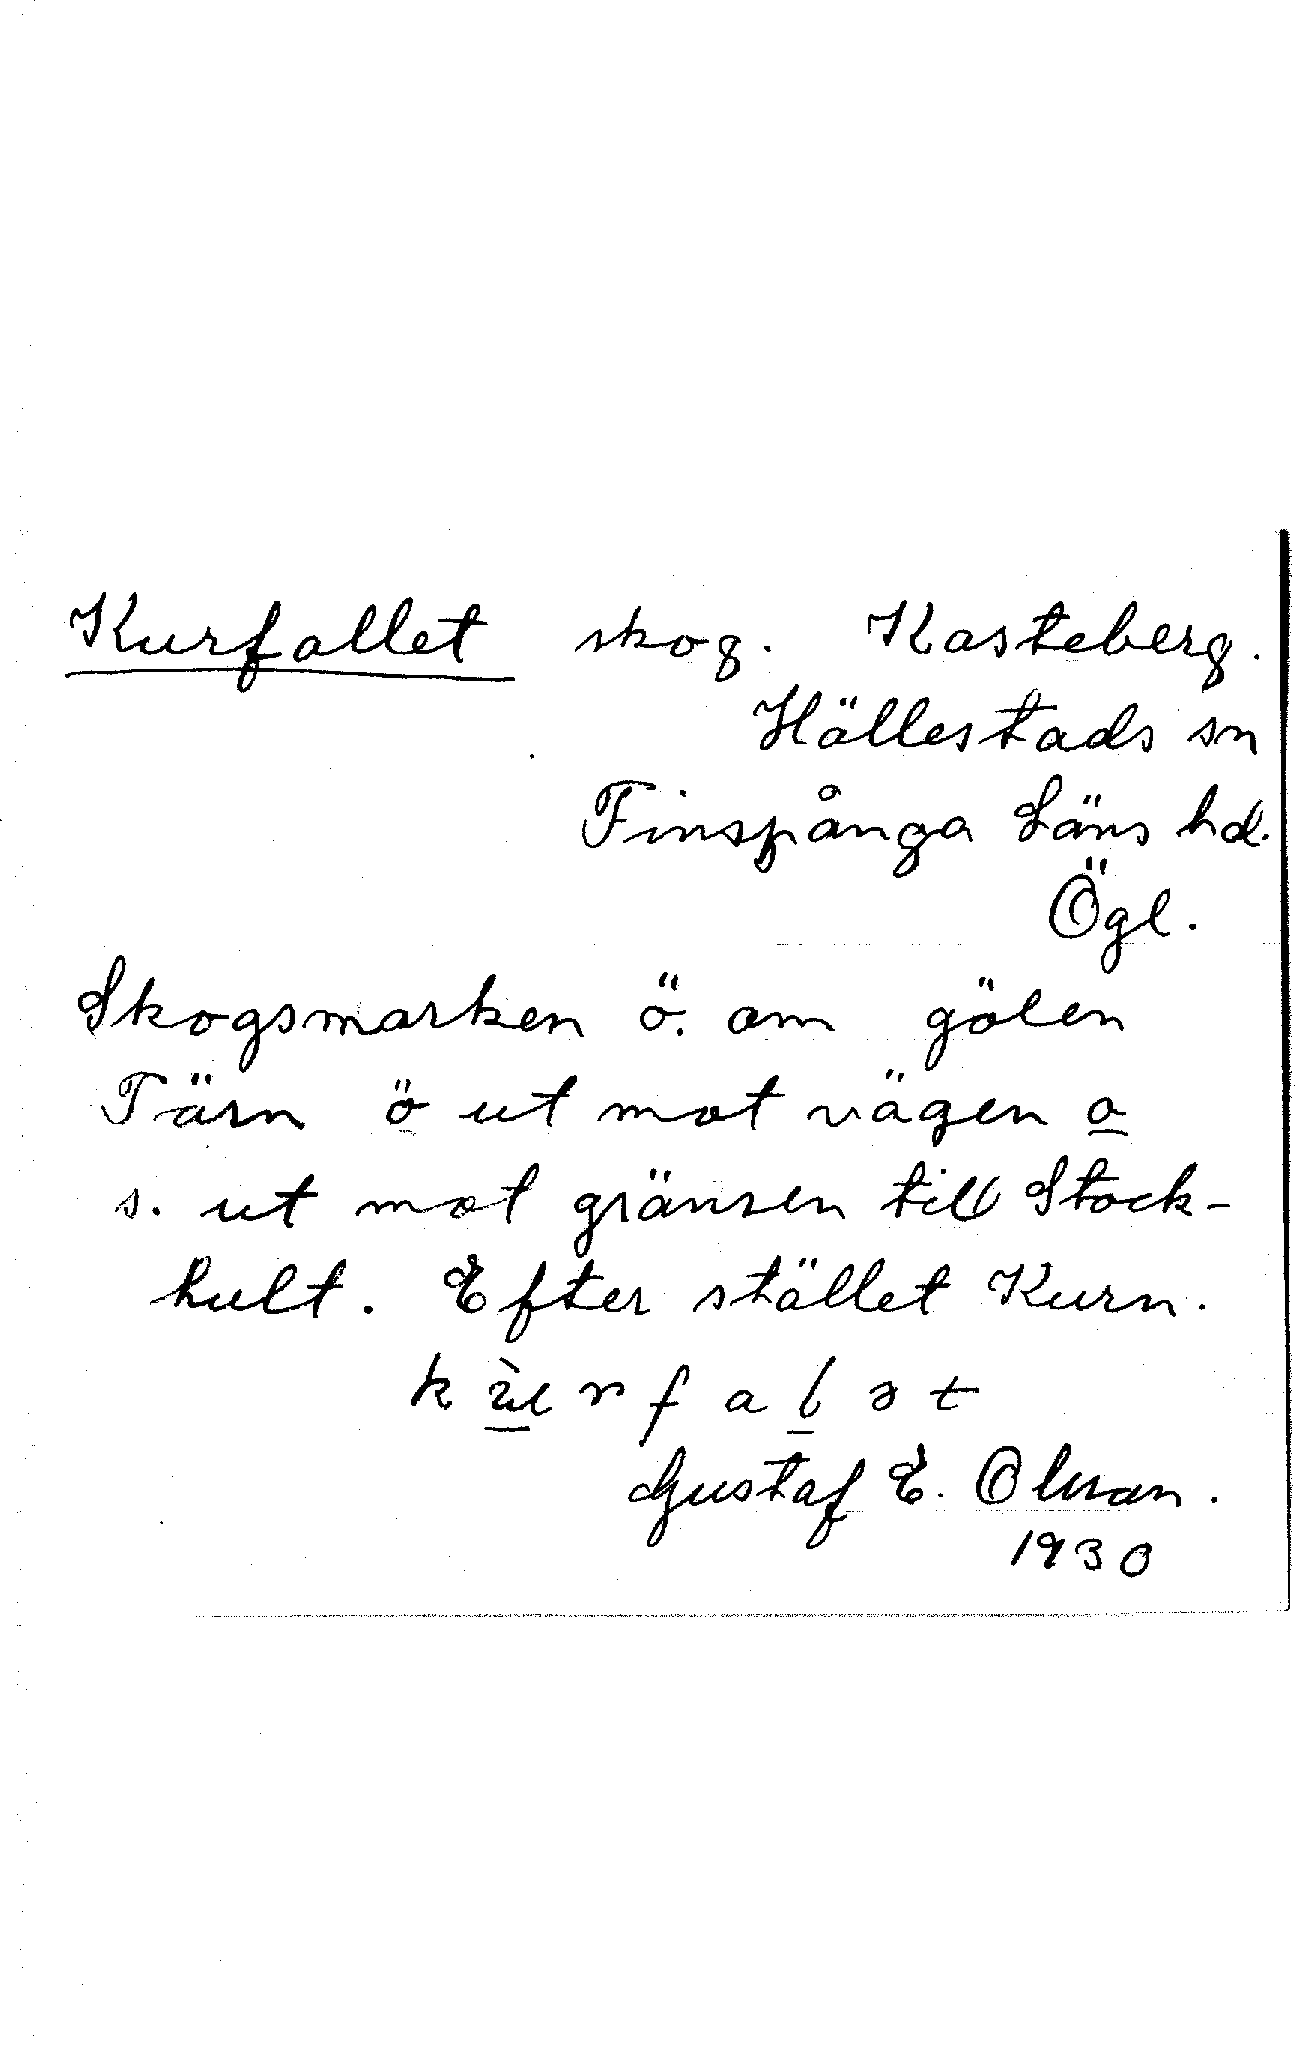 Kurfallet skog. Kasteberg.
Hällestads sn
Finspånga Läns hd.
Ögl.
Skogsmarken ö. om gölen
Tärn ö ut mot vägen o
s. ut mot gränsen till Stock-
hult. Efter stället Kurn.
Gustaf E. Olsson.
1930